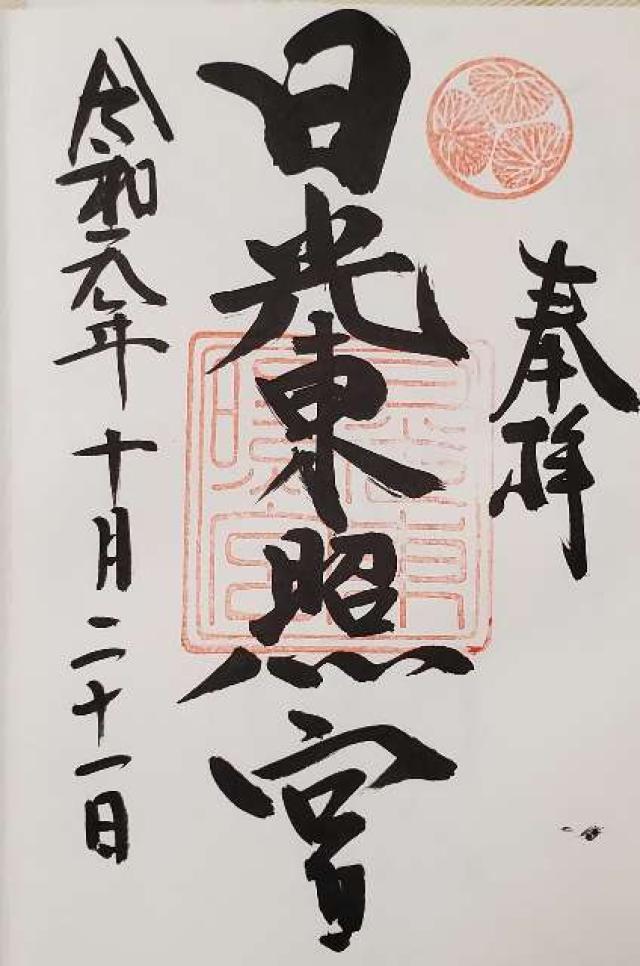 奉拝
日光東照宮
令和元年十月二十一日